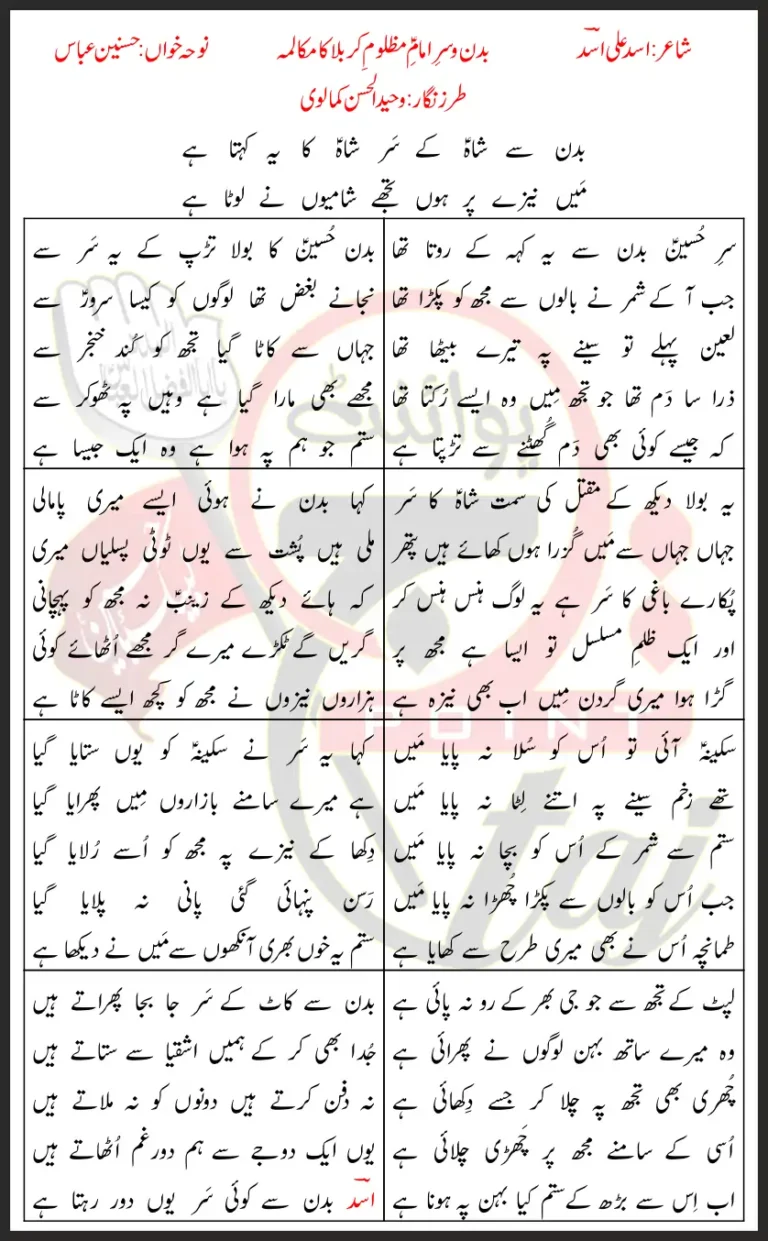 شاعر: اسد علی اسدؔ
بدن و سرِ امامِؑ مظلومِ کربلا کا مکالمہ
نوحہ خواں: حسنین عباس
طرز نگار: وحید الحسن کمالوی
بدن سے شاہؑ کے سَر شاہؑ کا یہ کہتا ہے
مَیں نیزے پر ہوں تجھے شامیوں نے لوٹا ہے
سرِ حُسینؑ بدن سے یہ کہہ کے روتا تھا
جب آ کے شمر نے بالوں سے مجھ کو پکڑا تھا
لعین پہلے تو سینے پہ تیرے بیٹھا تھا
ذرا سا دَم تھا جو تجھ مِیں وہ ایسے رُکتا تھا
کہ جیسے کوئی بھی دَم گُھٹنے سے تڑپتا ہے
بدن حُسینؑ کا بولا تڑپ کے یہ سَر سے
نجانے بغض تھا لوگوں کو کیسا سرورؑ سے
جہاں سے کاٹا گیا تجھ کو کُند خنجر سے
مجھے بھی مارا گیا ہے وہیں پہ ٹھوکر سے
ستم جو ہم پہ ہوا ہے وہ ایک جیسا ہے
یہ بولا دیکھ کے مقتل کی سمت شاہؑ کا سَر
جہاں جہاں سے مَیں گُزرا ہوں کھائے ہیں پتھر
پُکارے باغی کا سَر ہے یہ لوگ ہنس ہنس کر
اور ایک ظلمِ مسلسل تو ایسا ہے مجھ پر
گڑا ہوا میری گردن مِیں اب بھی نیزہ ہے
کہا بدن نے ہوئی ایسے میری پامالی
ملی ہیں پُشت سے یوں ٹوٹی پسلیاں میری
کہ ہائے دیکھ کے زینبؑ نہ مجھ کو پہچانی
گریں گے ٹکڑے میرے گر مجھے اُٹھائے کوئی
ہزاروں نیزوں نے مجھ کو کچھ ایسے کاٹا ہے
سکینہؑ آئی تو اُس کو سُلا نہ پایا مَیں
تھے زخم سینے پہ اتنے لِٹا نہ پایا مَیں
ستم سے شمر کے اُس کو بچا نہ پایا مَیں
جب اُس کو بالوں سے پکڑا چُھڑا نہ پایا مَیں
طمانچہ اُس نے بھی میری طرح سے کھایا ہے
کہا یہ سَر نے سکینہؑ کو یوں ستایا گیا
ہے میرے سامنے بازاروں مِیں پھرایا گیا
دِکھا کے نیزے پہ مجھ کو اُسے رُلایا گیا
رَسن پنہائی گئی پانی نہ پلایا گیا
ستم یہ خوں بھری آنکھوں سے مَیں نے دیکھا ہے
لپٹ کے تجھ سے جو جی بھر کے رو نہ پائی ہے
وہ میرے ساتھ بہن لوگوں نے پھرائی ہے
چُھری بھی تجھ پہ چلا کر جسے دِکھائی ہے
اُسی کے سامنے مجھ پر چَھڑی چلائی ہے
اب اِس سے بڑھ کے ستم کیا بہن پہ ہونا ہے
بدن سے کاٹ کے سَر جا بجا پھراتے ہیں
جُدا بھی کر کے ہمیں اشقیا سے ستاتے ہیں
نہ دفن کرتے ہیں دونوں کو نہ ملاتے ہیں
یوں ایک دوجے سے ہم دور غم اُٹھاتے ہیں
اسدؔ بدن سے کوئی سَر یوں دور رہتا ہے
پوائنٹ
POINT
taj